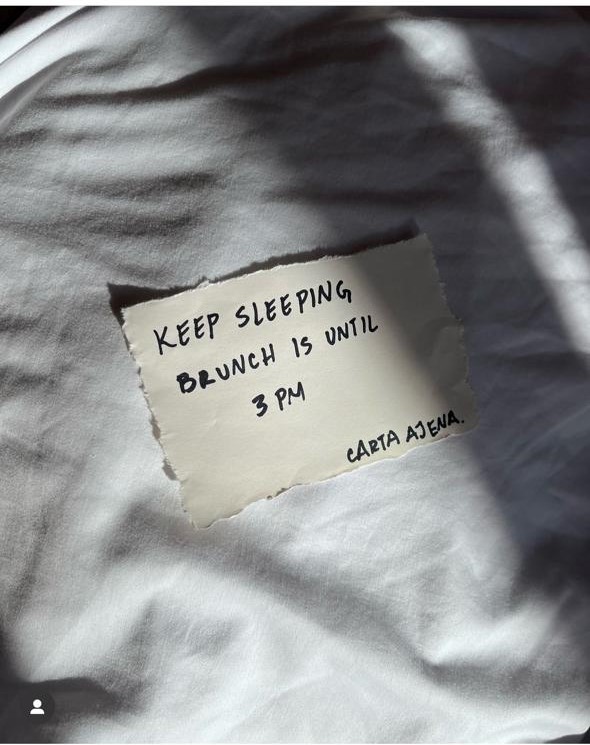 KEEP SLEEPING
BRUNCH IS UNTIL
3 PM
CARTA AJENA.